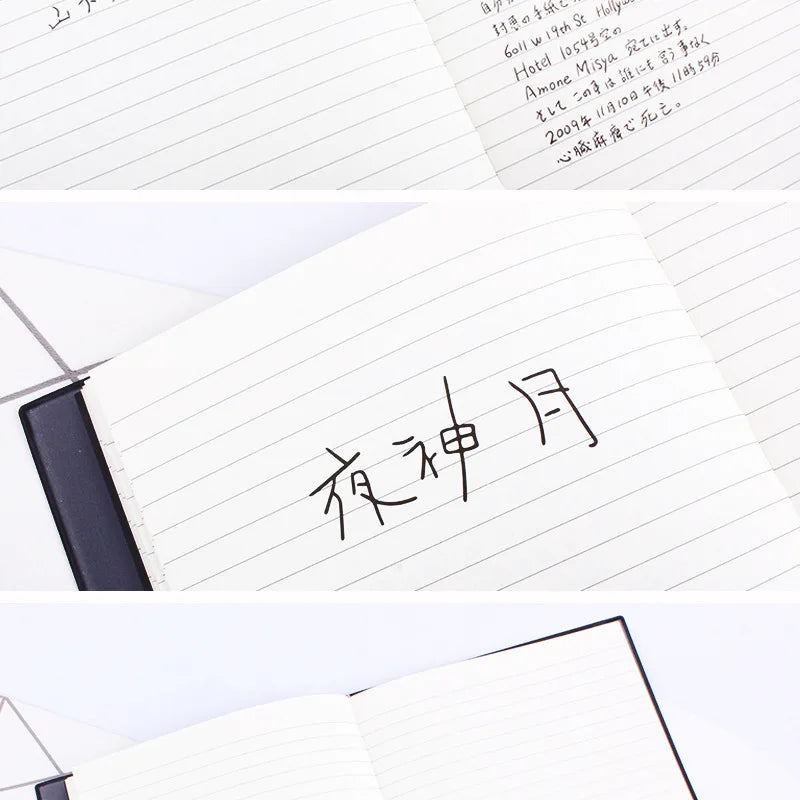 自分
封悪の手紙で
6011 w 19th St Hollyw
Hotel 1054号室の
Amone Misya 宛てに出す。
そして この事は 誰にも 言う事なく
2009年 11月10日 午後 11時59分
心臓麻痺で 死亡。
夜神 月